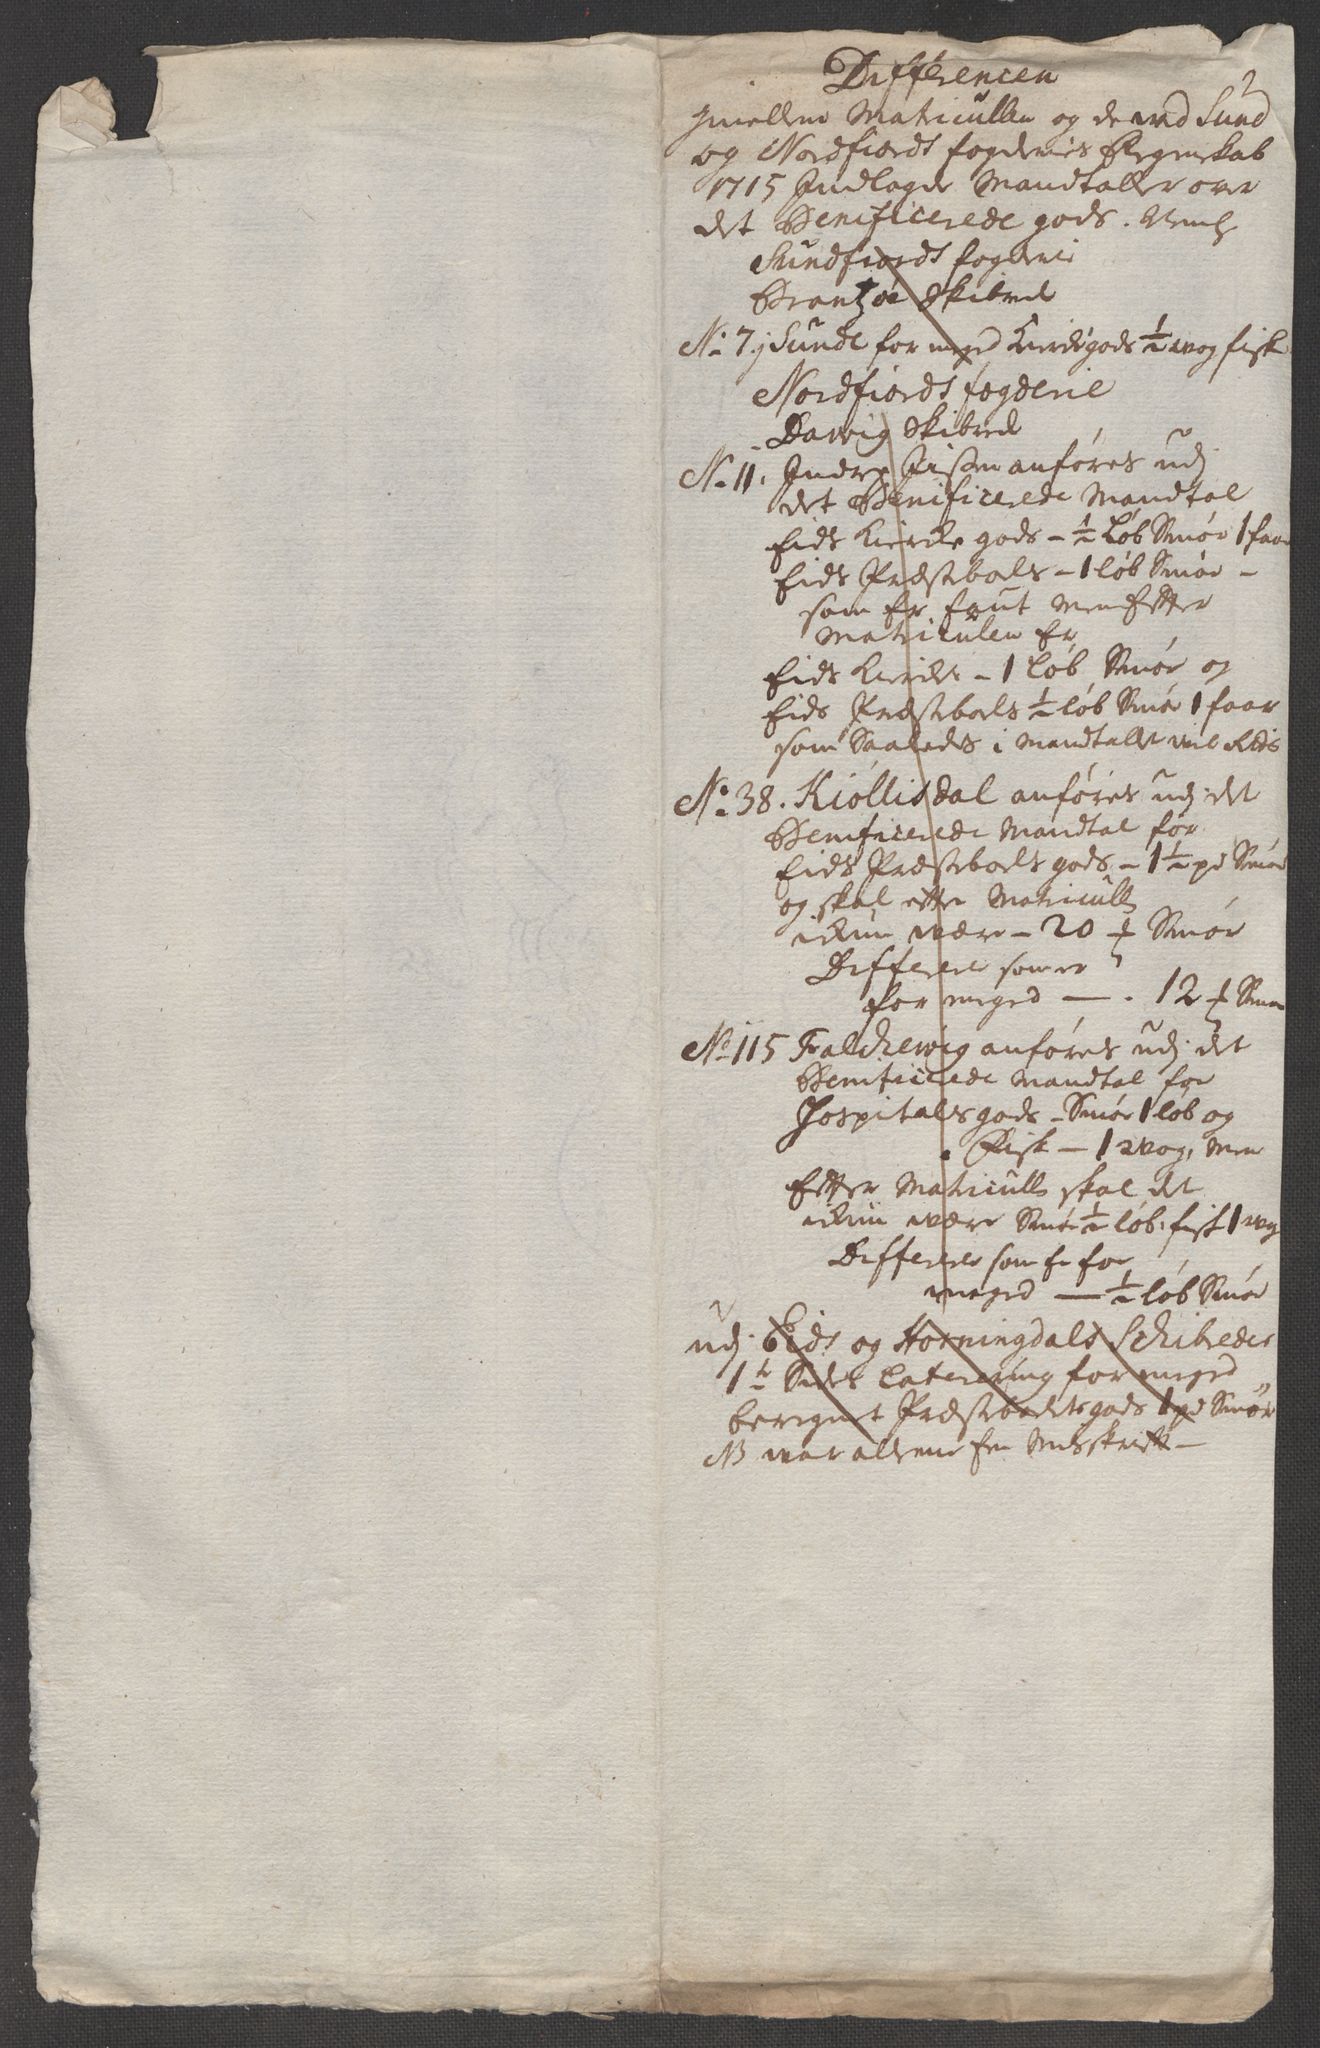 Differencen
Imellem Matricullen og de ved Sund
og Nordfiords fogderies Regenskab
1715 Indlagde Mandtaller over
det Beneficerede gods. Neml
Sundfiords fogderie
Brantzøe Skibrede
No 7. j Sunde for meged Kirkegods ½ wog fisk
Nordfiords fogderie
Dawig Skibrede
No 11. Indre anføres udj
det Beneficerede Mandtal
Eids Kircke gods - ½ Løb Smør 1 faar
Eids Præstebols - 1 løb Smør -
som Er fout Men Efter
Matriculen Er
Eids Kircke - 1 Løb Smør og
Eids Præstebols ½ løb Smør 1 faar
som Saaledes i Mandtallet vil
No 38. Kiøllisdal anføres udj det
Beneficerede Mandtal for
Eids Præstebols gods - 1½ pd Smør
og skal efter Matricull
ickun være - 20 Smør
Differer som er
for meged — . 12 Smør
No 115 Falchewig anføres udj det
Beneficerede Mandtal for
Hospitals gods - Smør 1 løb og
Fisk - 1 wog, Men
Efter Matricull skal det
ickun være Smør ½ løb, fisk 1 wog
Differer som Er for
meged — ½ løb Smør
udj Eids og Horningdals Schibreder
1te Sides Laterering for meged
beregnet Præstebolets gods 1 pd Smør
NB war allene En Misskrift -